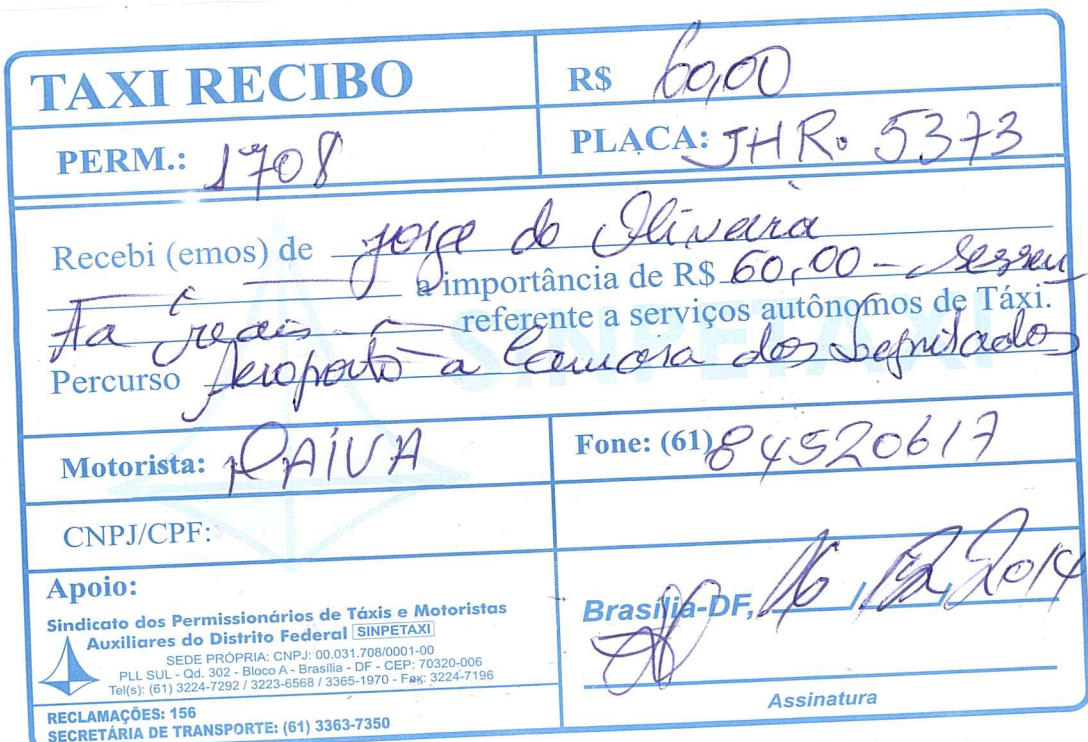 TAXI RECIBO
R$ 60,00
PERM.: 1708
PLACA: JHR. 5373
Recebi (emos) de Jorge de Oliveira
a importância de R$ 60,00 - Sessen
ta reais referente a serviços autônomos de Táxi.
Percurso Aeroporto a Camara dos Deputados
SINPETAXI
Motorista: PAIVA
Fone: (61) 84520617
CNPJ/CPF:
Apoio:
Sindicato dos Permissionários de Táxis e Motoristas
Auxiliares do Distrito Federal SINPETAXI
SEDE PRÓPRIA: CNPJ: 00.031.708/0001-00
PLL SUL - Qd. 302 - Bloco A - Brasília - DF - CEP: 70320-006
Tel(s): (61) 3224-7292 / 3223-6568 / 3365-1970 - Fax: 3224-7196
RECLAMAÇÕES: 156
SECRETÁRIA DE TRANSPORTE: (61) 3363-7350
Brasília-DF, 16 / 12 / 2014
Assinatura